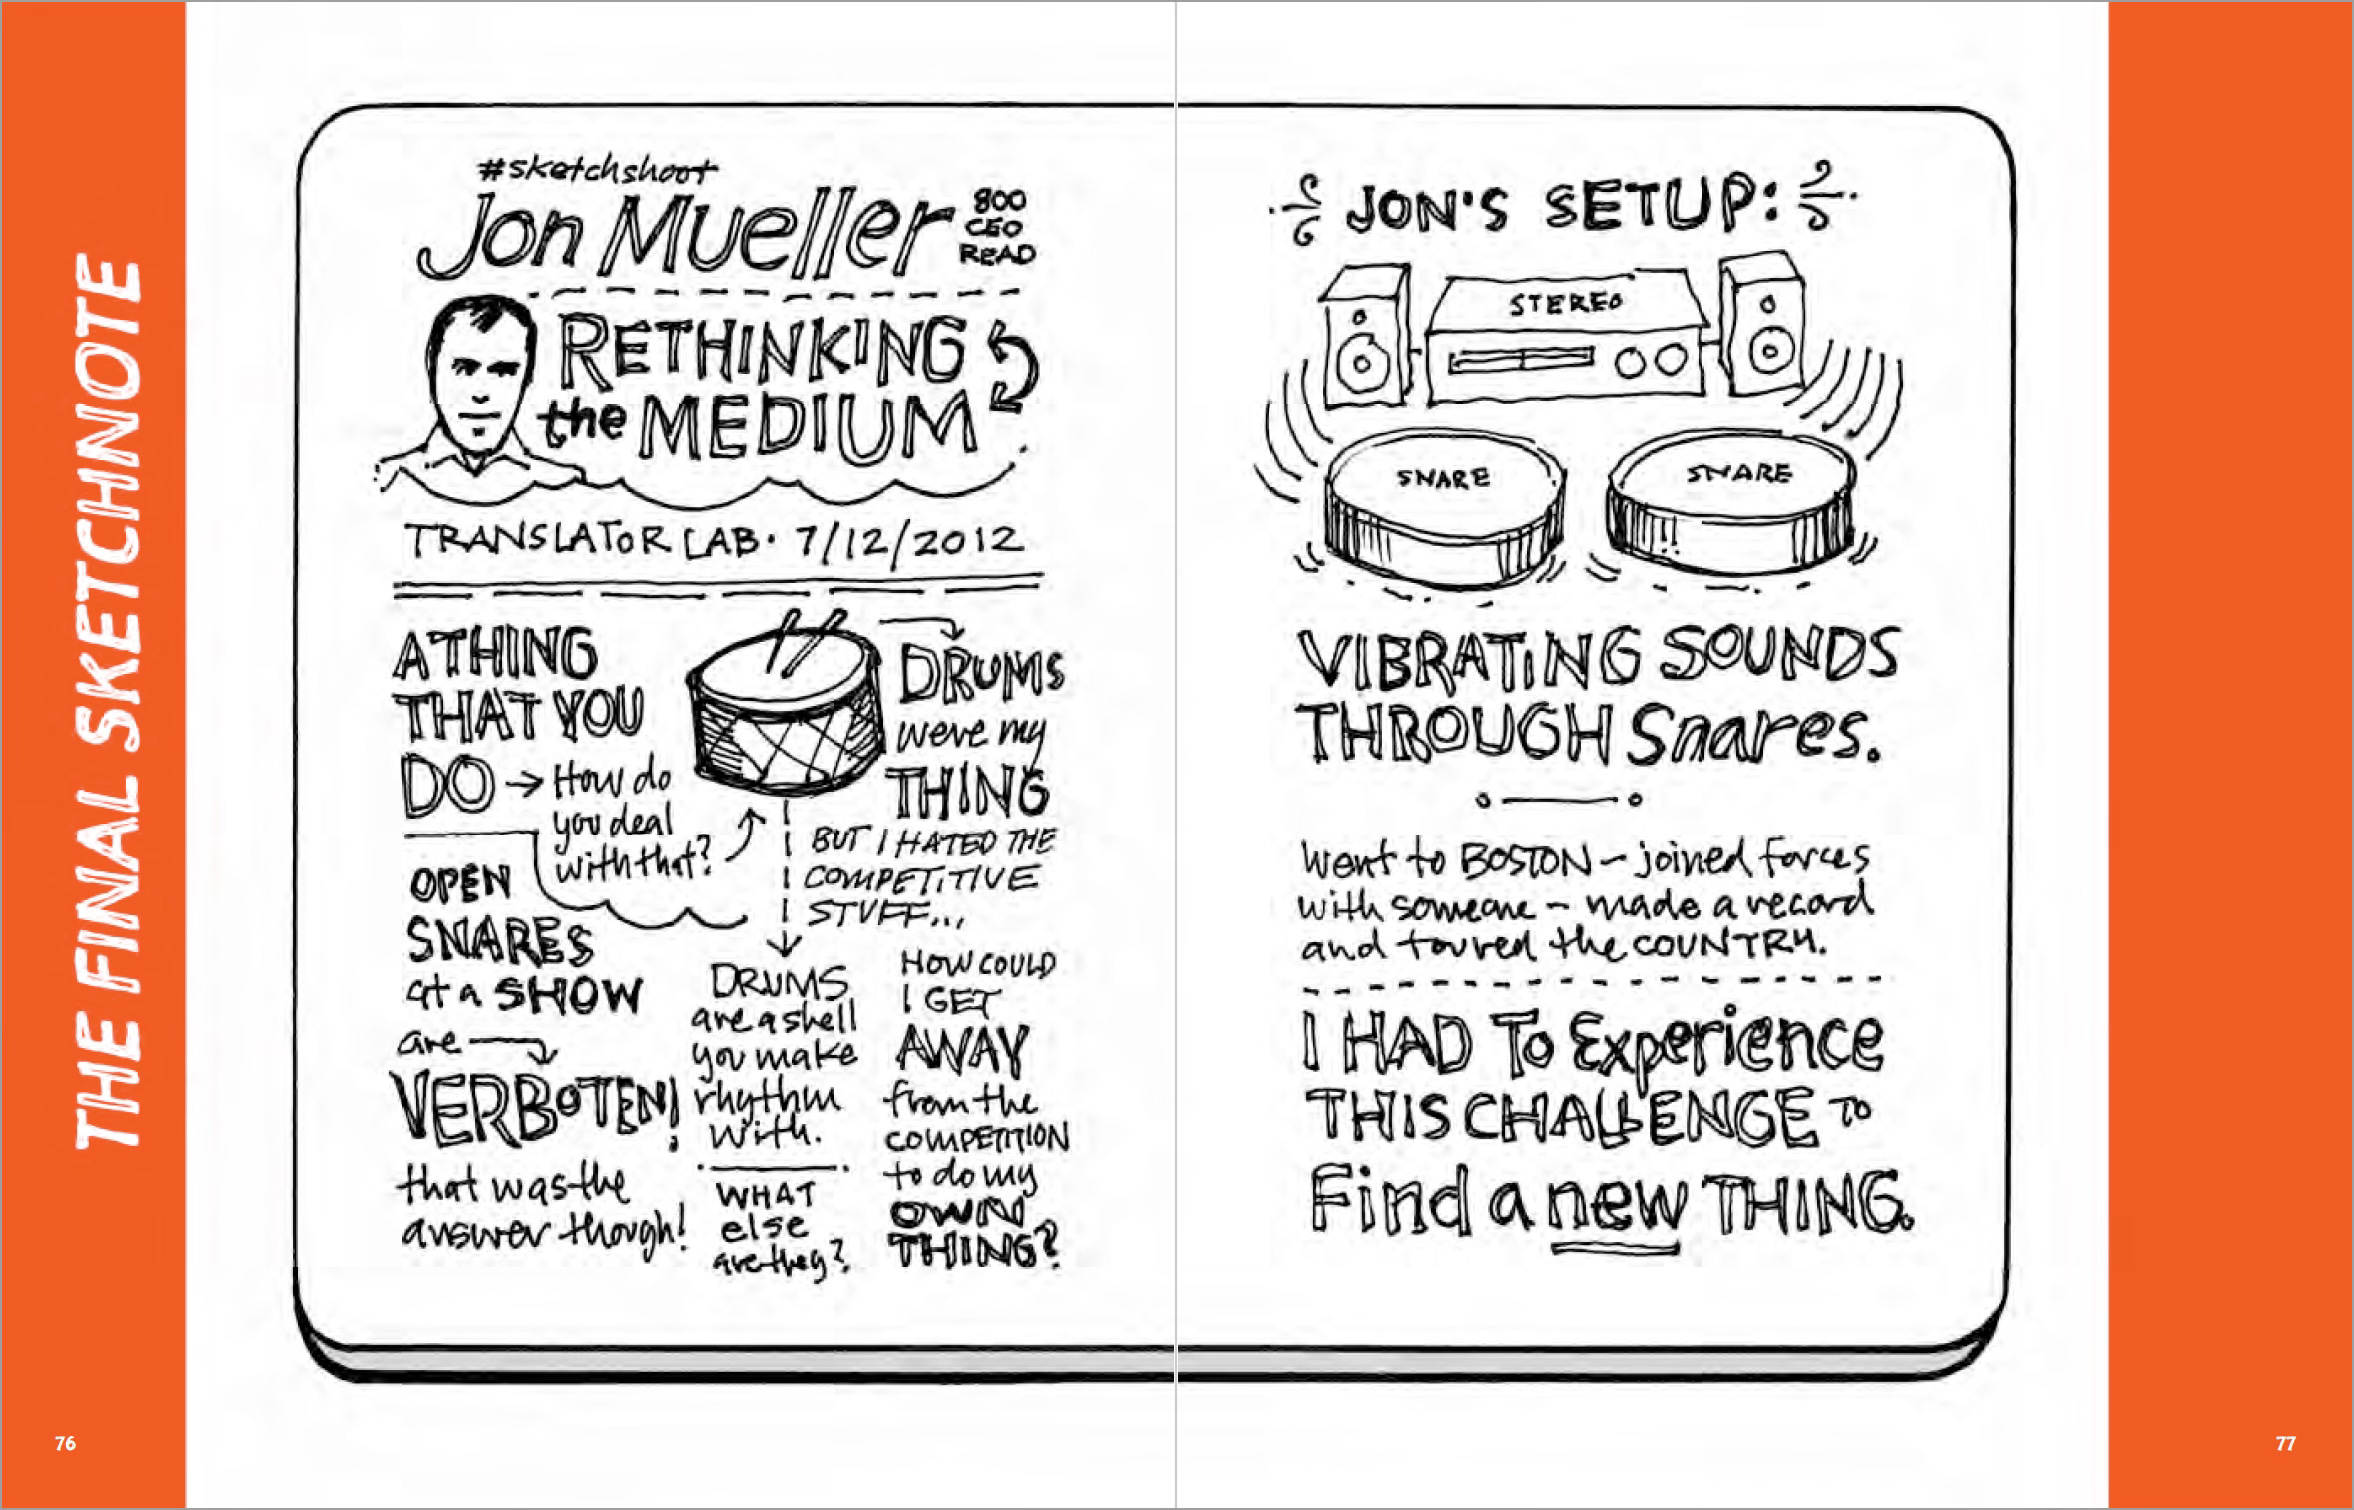 THE FINAL SKETCHNOTE
#sketchshoot
Jon Mueller
800
CEO
READ
RETHINKING
the MEDIUM
TRANSLATOR LAB • 7/12/2012
A THING
THAT YOU
DO → How do
you deal
with that?
DRUMS
were my
THING
BUT I HATED THE
COMPETITIVE
STUFF...
OPEN
SNARES
at a SHOW
are
VERBOTEN!
that was the
answer though!
DRUMS
are a shell
you make
rhythm
with.
WHAT
else
are they?
HOW COULD
I GET
AWAY
from the
COMPETITION
to do my
OWN
THING?
76
JON'S SETUP:
STEREO
SNARE
SNARE
VIBRATING SOUNDS
THROUGH Snares.
Went to BOSTON – joined forces
with someone – made a record
and toured the COUNTRY.
I HAD To Experience
THIS CHALLENGE TO
Find a new THING.
77